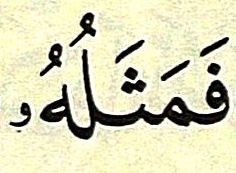 فَمَثَلُهُۥ